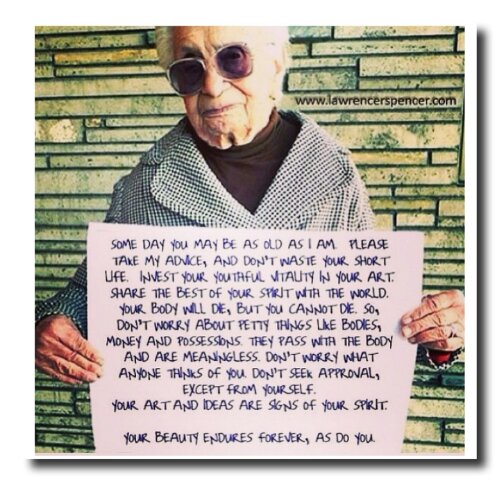 www.lawrencerspencer.com
SOME DAY YOU MAY BE AS OLD AS I AM. PLEASE
TAKE MY ADVICE, AND DON'T WASTE YOUR SHORT
LIFE. INVEST YOUR YOUTHFUL VITALITY IN YOUR ART.
SHARE THE BEST OF YOUR SPIRIT WITH THE WORLD.
YOUR BODY WILL DIE, BUT YOU CANNOT DIE. SO,
DON'T WORRY ABOUT PETTY THINGS LIKE BODIES,
MONEY AND POSSESSIONS. THEY PASS WITH THE BODY
AND ARE MEANINGLESS. DON'T WORRY WHAT
ANYONE THINKS OF YOU. DON'T SEEK APPROVAL,
EXCEPT FROM YOURSELF.
YOUR ART AND IDEAS ARE SIGNS OF YOUR SPIRIT.
YOUR BEAUTY ENDURES FOREVER, AS DO YOU.